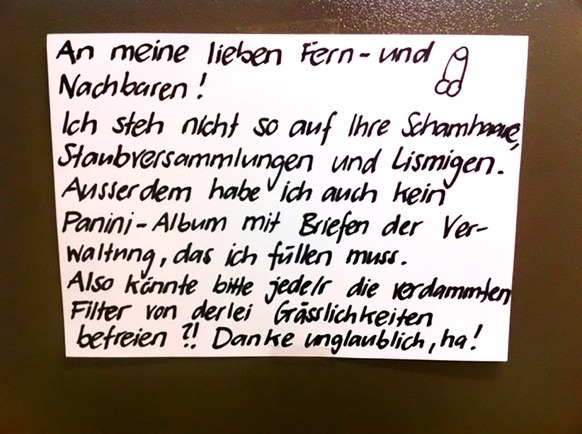 An meine lieben Fern- und
Nachbaren!
Ich steh nicht so auf Ihre Schamhaare,
Staubversammlungen und Lismigen.
Ausserdem habe ich auch kein
Panini-Album mit Briefen der Ver-
waltung, das ich füllen muss.
Also könnte bitte jede/r die verdammten
Filter von derlei Grässlichkeiten
befreien?! Danke unglaublich, ha!